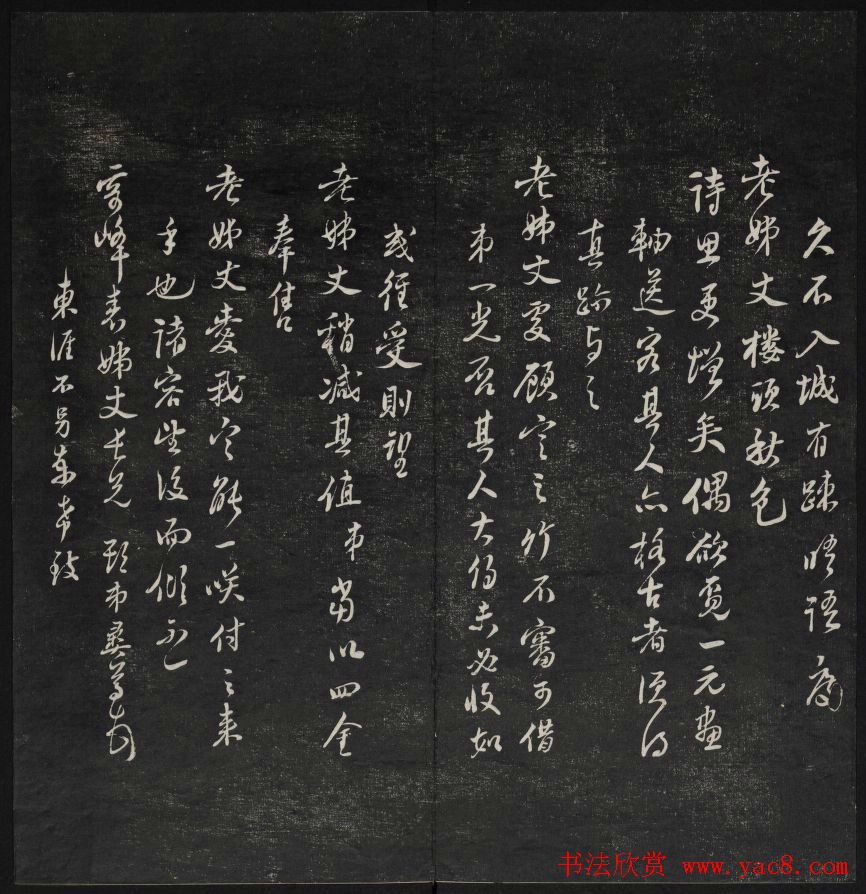 久不入城有疎晤語
老姊丈樓頭秋色
詩思更增矣偶欲覓一元畫
軸送客其人亦格古者須得
真跡与之
老姊丈處顧定之竹不審可借
弟一光否其人大約未必收如
或徑受則望
老姊丈稍減其值弟當以四金
奉售
老姊丈愛我定能一咲付之来
手也諸容坐後而傾
雪峰表姊丈長兄 弟
東涯不另希致
书法欣赏 www.yac8.com